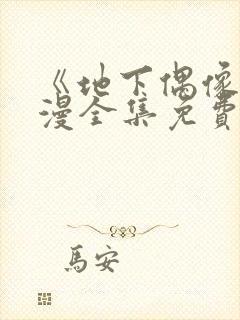 《地下偶像
漫全集免費
馬安